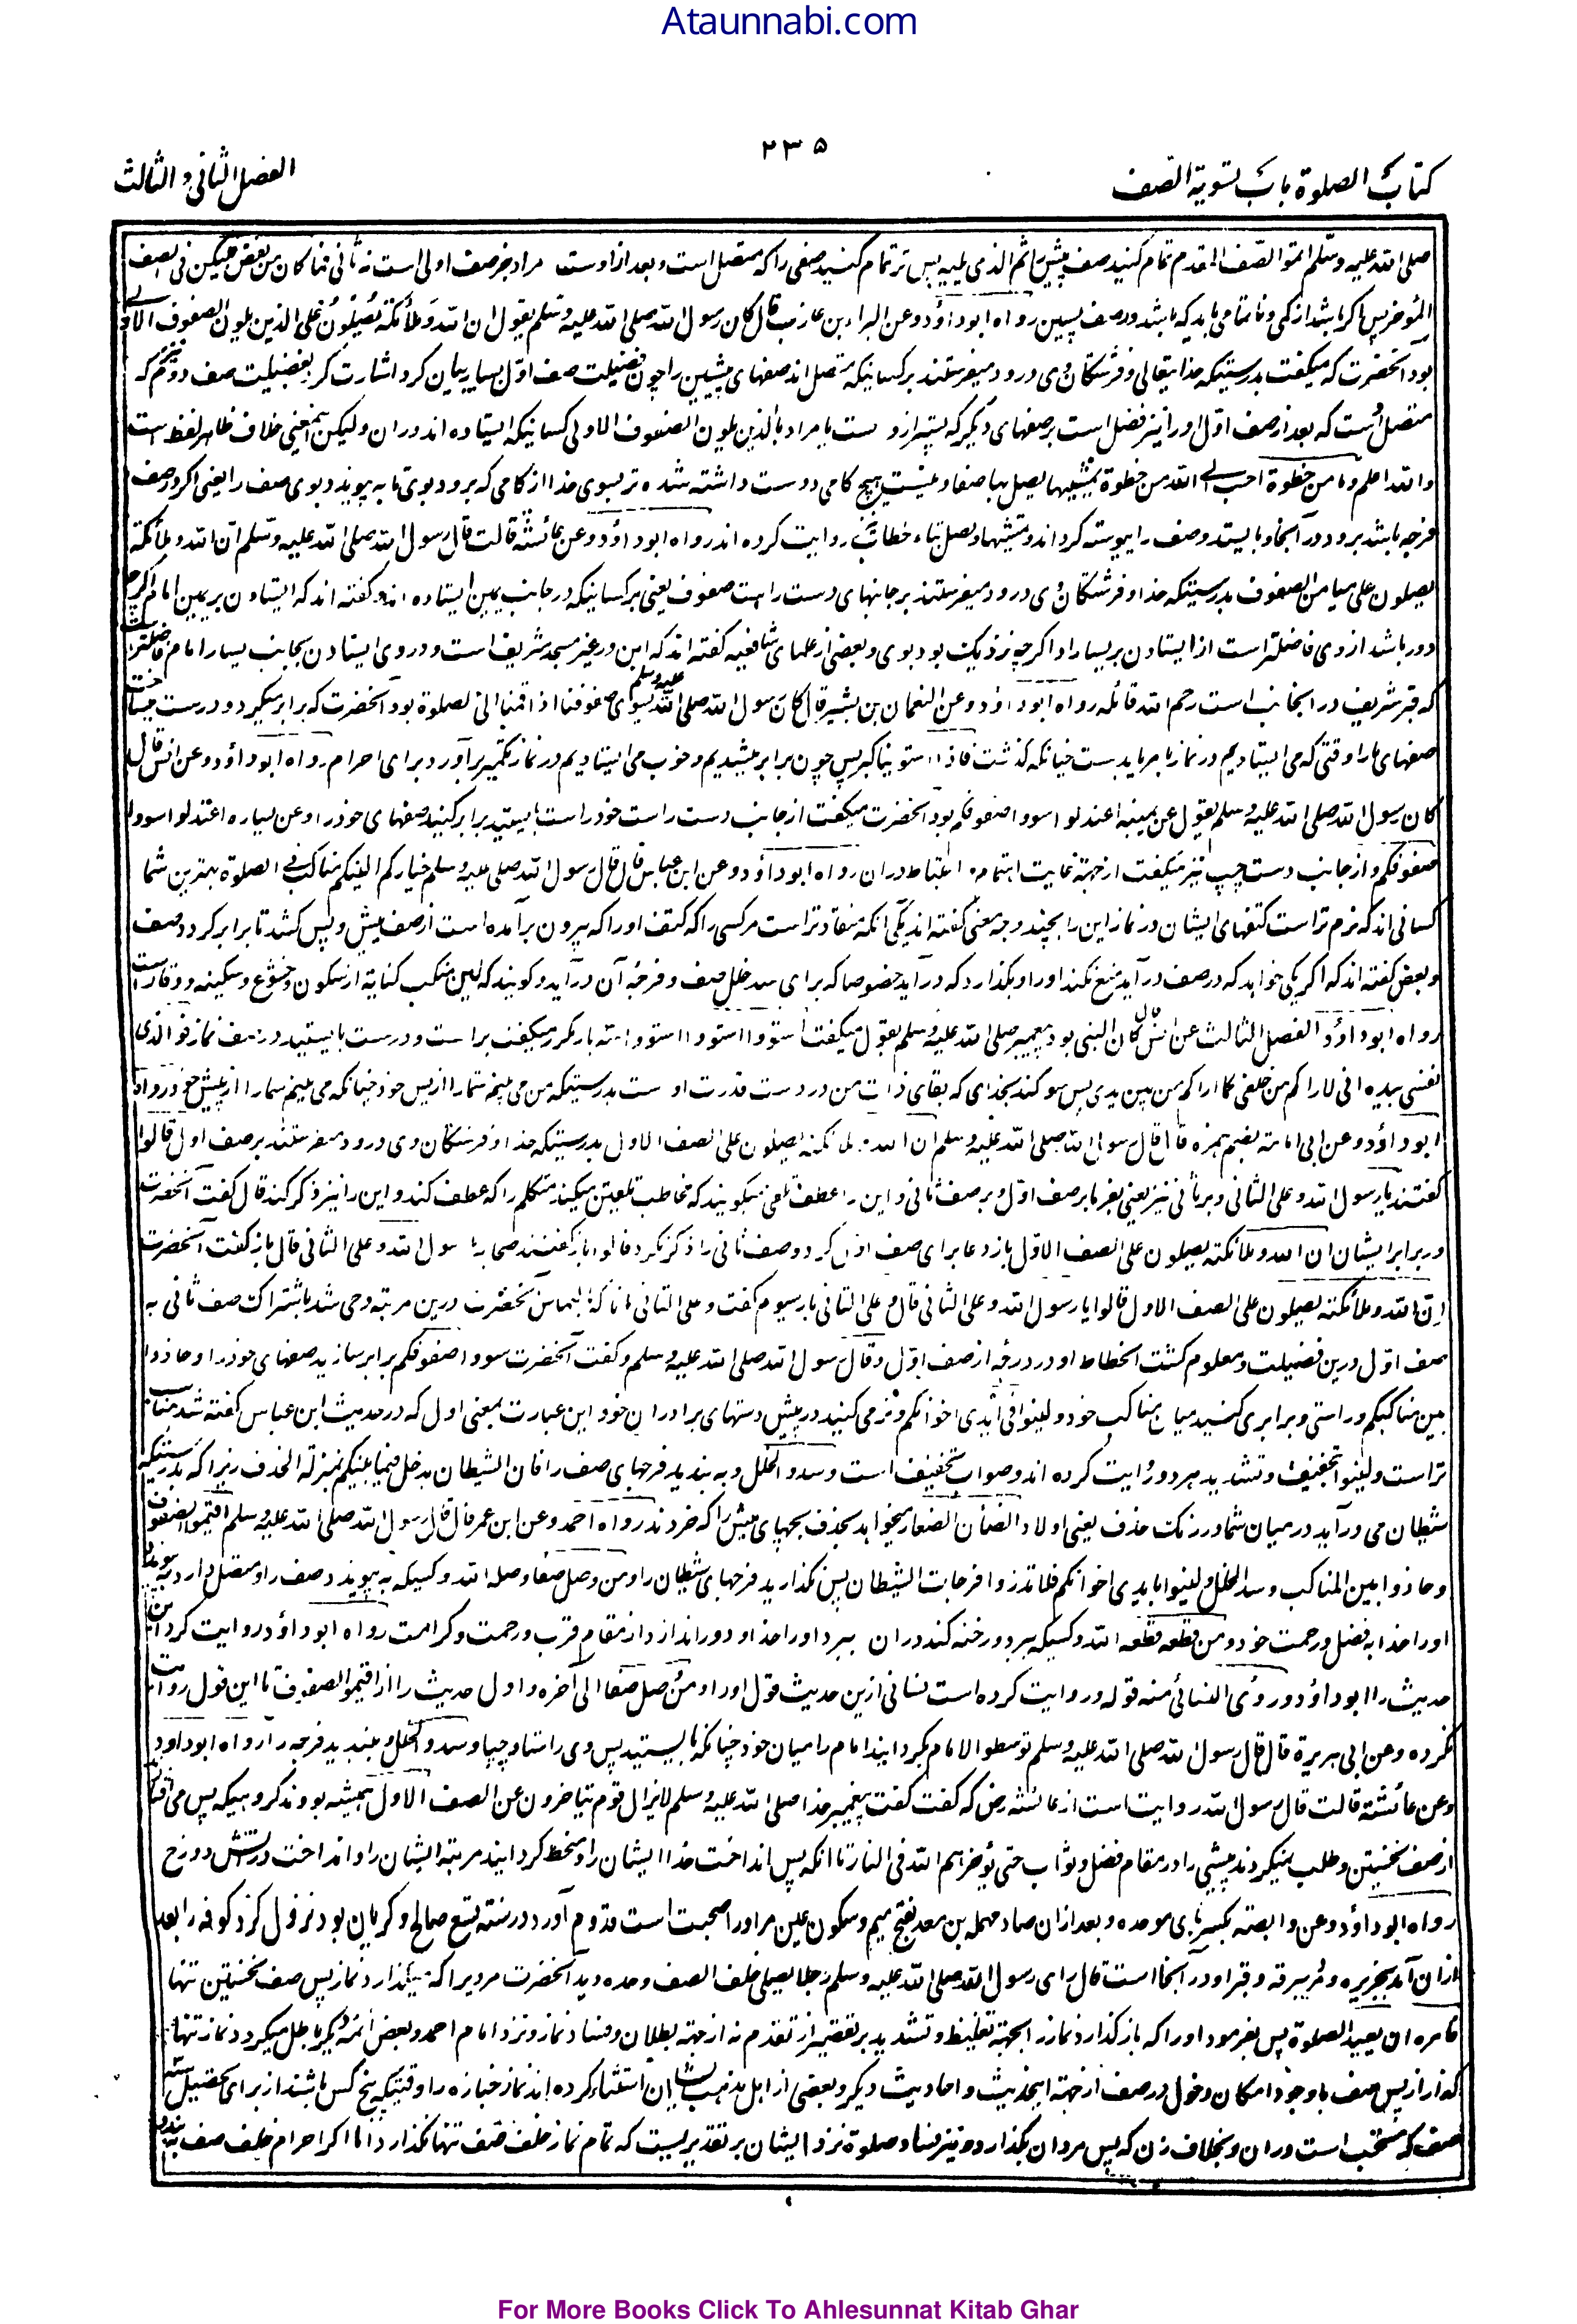 Ataunnabi.com
۲۳۵
کتاب الصلوة باب تسویة الصف
الفصل الثانی و الثالث
صلی الله علیه وسلم اتموا الصف المقدم تمام کنید صف پیشین را ثم الذی یلیه پس تر تمام کنید صفی را که متصل است و بعد از اوست مراد جز صف اولی است نه ثانی فما کان من نقص فلیکن فی الصف
المؤخر پس اگر باشد از کمی و ناتمامی باید که باشد در صف پسین رواه ابوداؤد وعن البراء بن عازب قال کان رسول الله صلی الله علیه وسلم یقول ان الله وملائکته یصلون علی الذین یلون الصفوف الاولی
بود آنحضرت که میگفت بدرستیکه خدایتعالی و فرشتگان وی درود میفرستند بر کسانیکه متصل اند صفهای پیشین را چون فضیلت صف اول بسیار بیان کرد اشارت کرد بفضیلت صف دوم که
متصل اوست که بعد از صف اول او را نیز فضل است بر صفهای دیگر که پستر ازوست یا مراد بالذین یلون الصفوف الاولی کسانیکه ایستاده اند دران ولیکن این معنی خلاف ظاهر لفظ است
والله اعلم وما من خطوة احب الی الله من خطوة یمشیها یصل بها صفا و نیست هیچ گامی دوست داشته شده تر بسوی خدا از گامی که برود بوی تا به پیوندد بوی صف را یعنی اگر در صف
فرجه باشد برود در آنجا و بایستد وصف را پیوسته گرداند و یمشیها ویصل بتاء خطاب نیز روایت کرده اند رواه ابوداؤد وعن عائشة قالت قال رسول الله صلی الله علیه وسلم ان الله وملائکته
یصلون علی میامن الصفوف بدرستیکه خدا و فرشتگان وی درود میفرستند بر جانبهای دست راست صفوف یعنی بر کسانیکه در جانب یمین ایستاده اند گفته اند که ایستادن بر یمین امام اگرچه
دور باشد از وی فاضلتر است از ایستادن بر یسار او اگرچه نزدیک بود بوی و بعضی از علمای شافعیه گفته اند که این در غیر مسجد شریف است و در وی ایستادن بجانب یسار امام فاضلتر است
که قبر شریف در آنجانب است رحم الله قائله رواه ابوداؤد وعن النعمان بن بشیر قال کان رسول الله صلی الله علیه وسلم یسوی صفوفنا اذا قمنا الی الصلوة بود آنحضرت که برابر میکرد و درست میساخت
صفهای ما را وقتی که می ایستادیم در نماز فاذا استوینا کبر پس چون برابر میشدیم و خوب می ایستادیم در نماز تکبیر برآورد برای احرام رواه ابوداؤد وعن انس قال
کان رسول الله صلی الله علیه وسلم یقول عن یمینه اعتدلوا سووا صفوفکم بود آنحضرت میگفت از جانب دست راست خود راست بایستید برابر کنید صفهای خود را وعن یساره اعتدلوا سووا
صفوفکم و از جانب دست چپ نیز میگفت از جهة غایت اهتمام و احتیاط دران رواه ابوداؤد وعن ابن عباس قال قال رسول الله صلی علیه وسلم خیارکم الینکم مناکب فی الصلوة بهترین شما
کسانی اند که نرم تر است کتفهای ایشان در نماز این را بچند وجه معنی گفته اند یکی آنکه منقاد تر است مر کسی را که کتف او را که بیرون برآمده است از صف پیش و پس کشد تا برابر گردد صف
و بعض گفته اند که اگر یکی خواهد که در صف درآید منع نکند او را و بگذارد که درآید خصوصا که برای سد خلل صف و فرجه آن درآید و گویند که لین منکب کنایة از سکون و خشوع و سکینه و وقار است
رواه ابوداؤد الفصل الثالث عن انس قال کان النبی بود پیغمبر صلی الله علیه وسلم یقول میگفت استووا استووا استووا سه بار مکرر میگفت براست و درست بایستید در صف نماز فوالذی
نفسی بیده انی لاراکم من خلفی کما اراکم من بین یدی پس سوگند بخدای که بقای ذات من در دست قدرت اوست بدرستیکه من می بینم شما را از پس خود چنانکه می بینم شما را از پیش خود رواه
ابوداؤد وعن ابی امامة بضم همزه قال قال رسول الله صلی الله علیه وسلم ان الله وملائکته یصلون علی الصف الاول بدرستیکه خدا و فرشتگان وی درود میفرستند بر صف اول قالوا
گفتند یا رسول الله وعلی الثانی و بر ثانی نیز یعنی بفرما بر صف اول و بر صف ثانی و این را عطف تلقین میگویند که مخاطب تلقین میکند متکلم را که عطف کند و این را نیز ذکر کند قال گفت آنحضرت
در برابر ایشان ان الله وملائکته یصلون علی الصف الاول باز دعا برای صف اول کرد و صف ثانی را ذکر نکرد قالوا باز گفتند صحابه یا رسول الله وعلی الثانی قال باز گفت آنحضرت
ان الله وملائکته یصلون علی الصف الاول قالوا یا رسول الله وعلی الثانی قال وعلی الثانی بار سیوم گفت وعلی الثانی
صف اول درین فضیلت و معلوم گشت انحطاط او در درجه از صف اول وقال رسول الله صلی الله علیه وسلم و گفت آنحضرت سووا صفوفکم برابر سازید صفهای خود را وحاذوا
بین مناکبکم و راستی و برابری کنید میان مناکب خود ولینوا فی ایدی اخوانکم و نرمی کنید در پیش دستهای برادران خود این عبارت بمعنی اول که در حدیث ابن عباس گفته شد مناسب
تر است ولینوا بتخفیف و تشدید هر دو روایت کرده اند و صواب تخفیف است وسدوا الخلل و به بندید فرجهای صف را فان الشیطان یدخل فیما بینکم بمنزلة الحذف زیرا که بدرستیکه
شیطان می درآید در میان شما در رنگ حذف یعنی اولاد الضأن الصغار میخواهد بحذف بچهای میش را که خردند رواه احمد وعن ابن عمر قال قال رسول الله صلی الله علیه وسلم اقیموا الصفوف
وحاذوا بین المناکب وسدوا الخلل ولینوا بایدی اخوانکم فلا تذروا فرجات الشیطان پس نگذارید فرجهای شیطان را ومن وصل صفا وصله الله و کسیکه به پیوندد صف را و متصل دارد به پیوندد
او را خدا بفضل و رحمت خود ومن قطعه قطعه الله و کسیکه ببرد و رخنه کند دران ببرد او را خدا و دور اندازد از مقام قرب و رحمت و کرامت رواه ابوداؤد روایت کرد این
حدیث را ابوداؤد وروی النسائی منه قوله و روایت کرده است نسائی ازین حدیث قول او را ومن وصل صفا الی آخره و اول حدیث را از اقیموا الصفوف تا این قول روایت
نکرده وعن ابی هریرة قال قال رسول الله صلی الله علیه وسلم توسطوا الامام بگردانید امام را میان خود چنانکه بایستید پس وی راستا و چپا وسدوا الخلل و ببندید فرجه را رواه ابوداود
وعن عائشة قالت قال رسول الله روایت است از عائشه رض که گفت گفت پیغمبر خدا صلی الله علیه وسلم لایزال قوم یتاخرون عن الصف الاول همیشه بودند گروهیکه پس می افتند
از صف نخستین و طلب نمیکردند پیشی را در مقام فضل و ثواب حتی یؤخرهم الله فی النار تا آنکه پس انداخت خدا ایشان را و منحط گردانید مرتبه ایشان را و انداخت در آتش دوزخ
رواه ابوداؤد وعن وابصة بکسر بای موحده و بعد ازان صاد مهمله بن معبد بفتح میم وسکون عین مر او را صحبت است قدوم آورد در سنه تسع صالح و گریان بود نزول کرد کوفه را بعد
ازان آمد بجزیره و مرد برقه و قبر او در آنجا است قال رای رسول الله صلی الله علیه وسلم رجلا یصلی خلف الصف وحده دید آنحضرت مردیرا که میگذارد نماز پس صف نخستین تنها
فامره ان یعید الصلوة پس بفرمود او را که باز گذارد نماز را بجهة تغلیظ و تشدید بر تقصیر از تقدم نه از جهة بطلان و فساد نماز و نزد امام احمد و بعض ائمه دیگر باطل میگردد نماز تنها
گذار از پس صف با وجود امکان دخول در صف از جهة اینحدیث و احادیث دیگر و بعضی از اهل مذهب ایشان استثناء کرده اند نماز جنازه را وقتیکه پنج کس باشند از برای تحصیل سه
صف که مستحب است دران و بخلاف زن که پس مردان بگذارد و نیز فساد صلوة نزد ایشان بر تقدیریست که تمام نماز خلف صف تنها گذارد اما اگر احرام خلف صف بندد
For More Books Click To Ahlesunnat Kitab Ghar